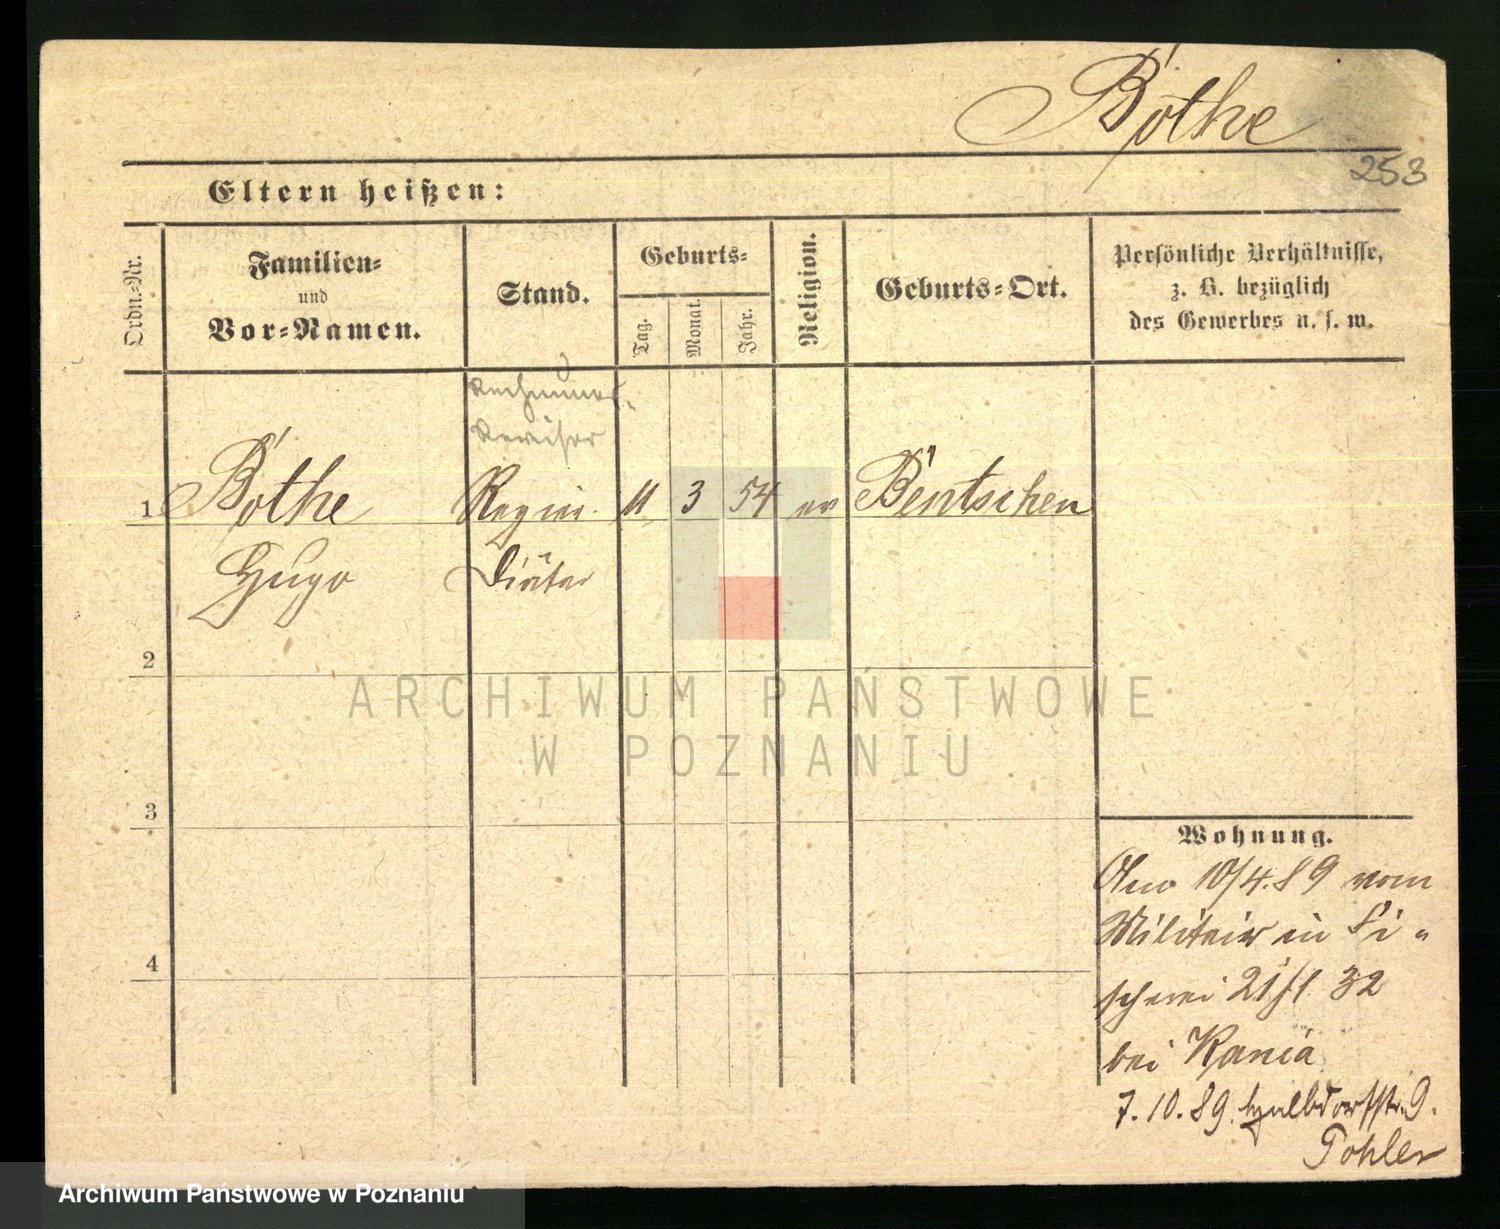 Bothe
253
Eltern heißen:
Ordn.-Nr.
Familien-
und
Vor-Namen.
Stand.
Geburts-
Tag.
Monat.
Jahr.
Religion.
Geburts-Ort.
Persönliche Verhältnisse,
z. B. bezüglich
des Gewerbes u. s. w.
Rechnungs-
Revisor
1 Bothe Regier. 11 3 54 ev Bentschen
Hugo Diätar
2
3
4
Wohnung.
10/4.89 vom
Militair in Fi-
scherei 21/1 32
bei Kania
7.10.89. Halbdorfstr. 9.
Pohler
ARCHIWUM PAŃSTWOWE
W POZNANIU
Archiwum Państwowe w Poznaniu